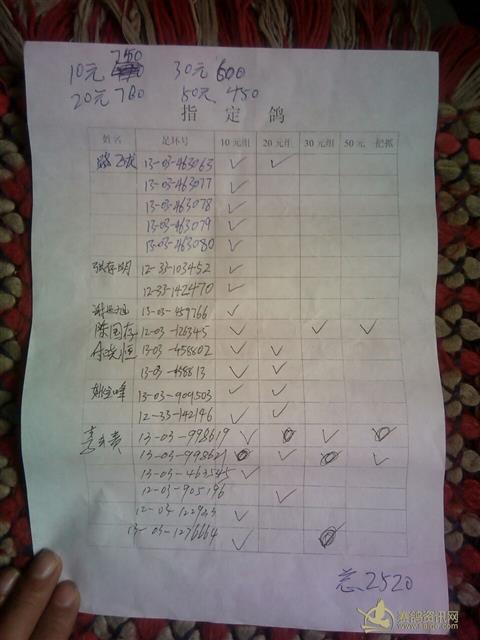 750
10元 30元 600
20元 780 50元 450
指 定 鸽
姓名 足环号 10元组 20元组 30元组 50元一把抓
13-03-463063 ✓ ✓
13-03-463077 ✓
13-03-463078 ✓
13-03-463079 ✓
13-03-463080 ✓
张存明 12-33-103452 ✓
12-33-142470 ✓
13-03-459766 ✓
陈国存 12-03-126345 ✓ ✓ ✓
13-03-458802 ✓ ✓
13-03-458813 ✓ ✓
13-03-909503 ✓ ✓
12-33-142146 ✓ ✓
13-03-998619 ✓ ✓
13-03-998621 ✓ ✓
13-03-463545 ✓
12-03-905196 ✓
✓
13-03-1276664 ✓
总2520
赛鸽资讯网